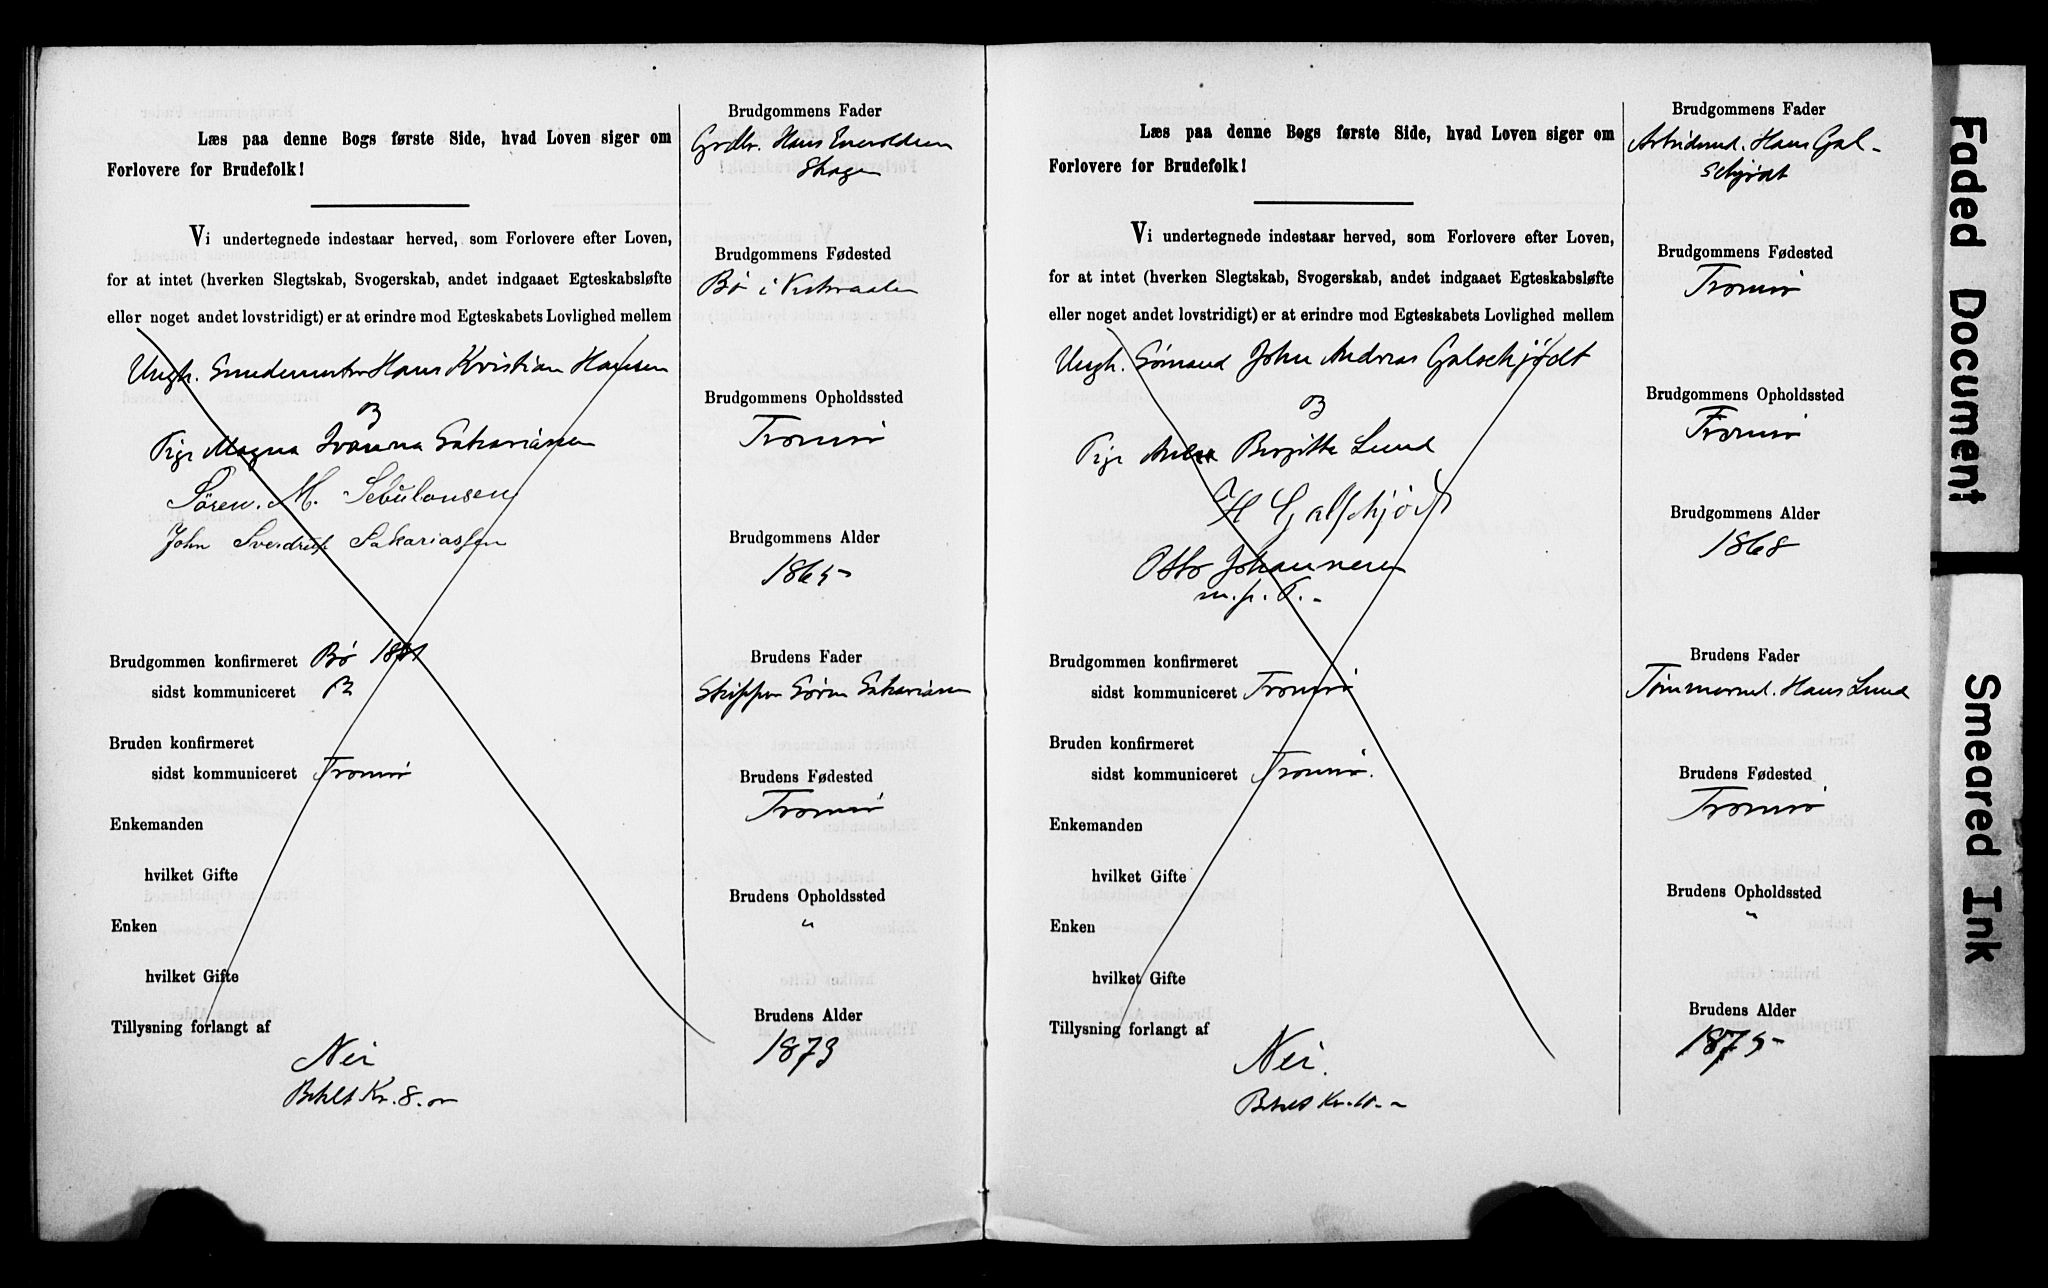 Læs paa denne Bogs første Side, hvad Loven siger om
Forlovere for Brudefolk!
Vi undertegnede indestaar herved, som Forlovere efter Loven,
for at intet (hverken Slegtskab, Svogerskab, andet indgaaet Egteskabsløfte
eller noget andet lovstridigt) er at erindre mod Egteskabets Lovlighed mellem
Ungk. Hans Kristian Hansen
Pige Magna Sakariassen
Søren. M. Sebulonsen
John Sverdrup Sakariassen
Brudgommen konfirmeret Bø
sidst kommuniceret
Bruden konfirmeret
sidst kommuniceret Tromsø
Enkemanden
hvilket Gifte
Enken
hvilket Gifte
Tillysning forlangt af
Nei
Betalt Kr. 8.
Brudgommens Fader
Hans
Brudgommens Fødested
Bø i Vesteraalen
Brudgommens Opholdssted
Tromsø
Brudgommens Alder
1865
Brudens Fader
Skipper Sören Sakariassen
Brudens Fødested
Tromsø
Brudens Opholdssted
"
Brudens Alder
1873
Læs paa denne Bogs første Side, hvad Loven siger om
Forlovere for Brudefolk!
Vi undertegnede indestaar herved, som Forlovere efter Loven,
for at intet (hverken Slegtskab, Svogerskab, andet indgaaet Egteskabsløfte
eller noget andet lovstridigt) er at erindre mod Egteskabets Lovlighed mellem
Ungk. Sømand John Andreas Galschjødt
Pige Birgitte Lund
H Galschjødt
Otto Johannesen
m. p. P.
Brudgommen konfirmeret
sidst kommuniceret Tromsø
Bruden konfirmeret
sidst kommuniceret Tromsø.
Enkemanden
hvilket Gifte
Enken
hvilket Gifte
Tillysning forlangt af
Nei.
Betalt Kr.
Brudgommens Fader
Arbeidsmd. Hans Gal-
schjødt
Brudgommens Fødested
Tromsø
Brudgommens Opholdssted
Tromsø
Brudgommens Alder
1868
Brudens Fader
Tømmermd. Hans Lund
Brudens Fødested
Tromsø
Brudens Opholdssted
"
Brudens Alder
1875
Faded Document
Smeared Ink